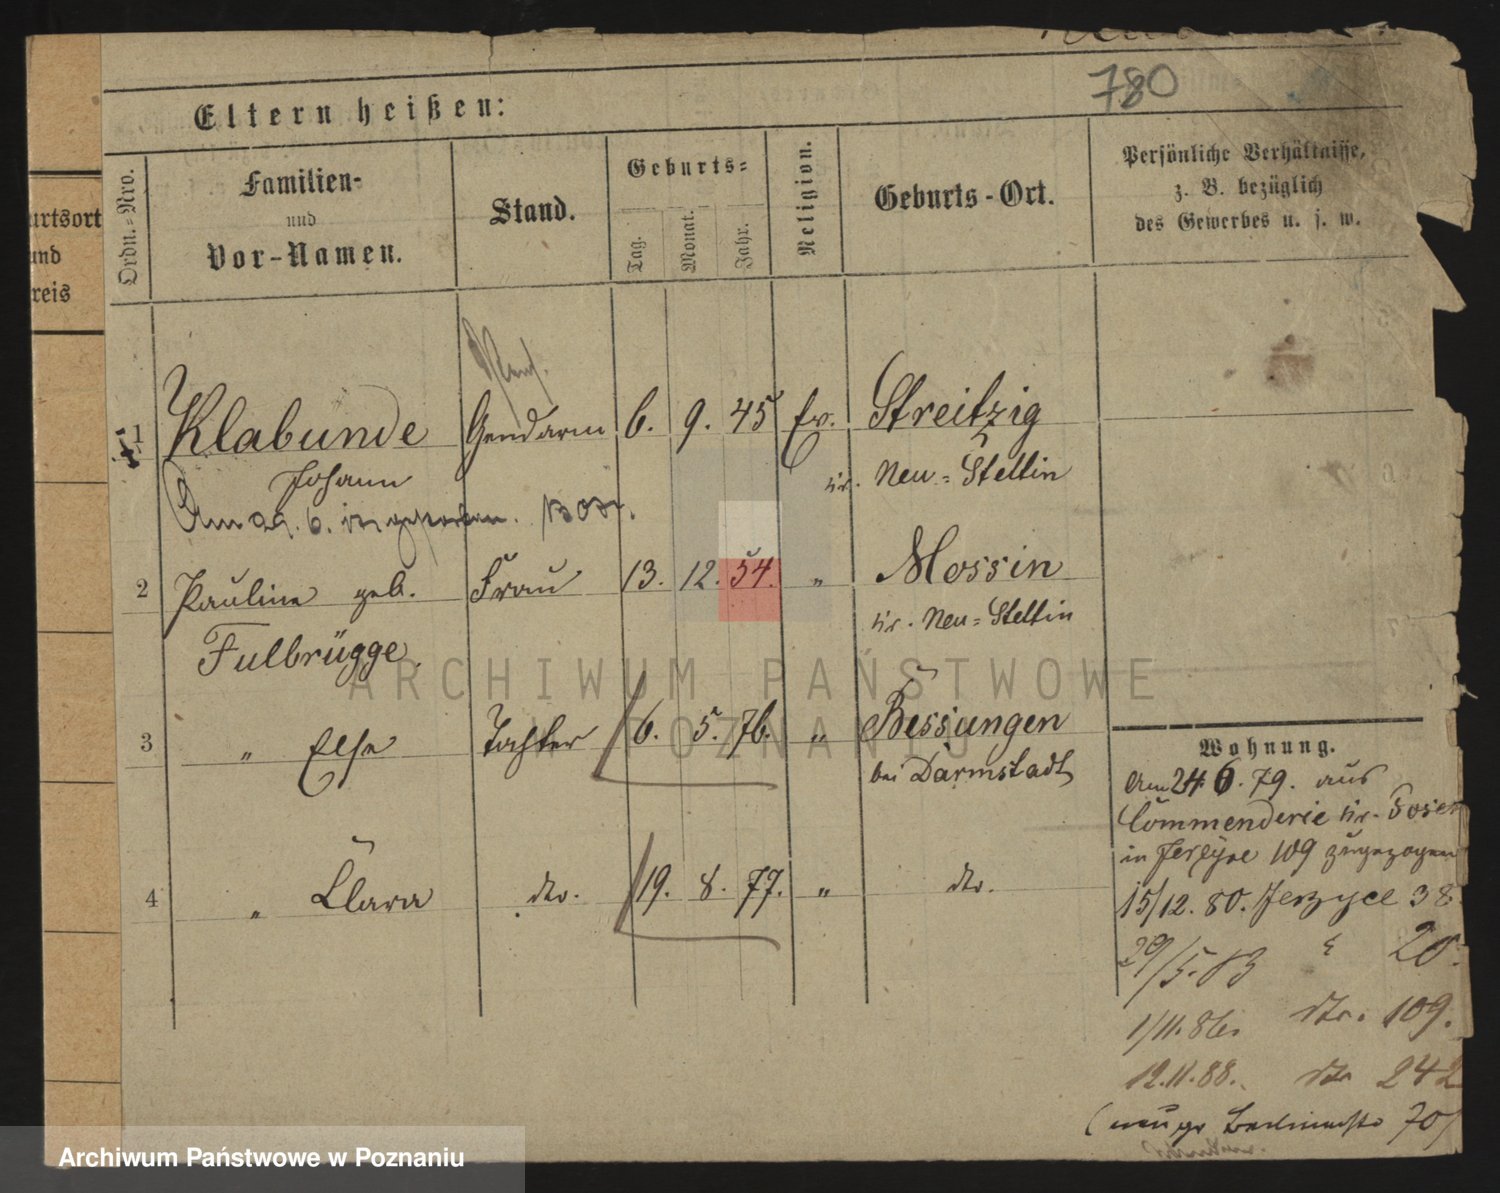 780
Eltern heißen:
urtsort
und
reis
Ordn.-Nro.
Familien-
und
Vor-Namen.
Stand.
Geburts-
Tag.
Monat.
Jahr.
Religion.
Geburts-Ort.
Persönliche Verhältnisse,
z. B. bezüglich
des Gewerbes u. s. w.
1 Klabunde Gendarm 6. 9. 45 Ev. Streitzig
Johann Kr. Neu-Stettin
Am 29. 6. gestorben.
2 Pauline geb. Frau 13. 12. 54. " Mossin
Fulbrügge. Kr. Neu-Stettin
3 " Else Tochter 6. 5. 76. " Bessungen
bei Darmstadt
4 " Clara dto. 19. 8. 77. " dto.
Wohnung.
Am 24 6. 79. aus
Commenderie Kr. Posen
in Jerzyce 109 zugezogen
15/12. 80. Jerzyce 38
29/5. 83 " 20.
1/11. 86. dto. 109.
12.11.88. dto 242
(neu gr Berlinerstr 70)
ARCHIWUM PAŃSTWOWE
W POZNANIU
Archiwum Państwowe w Poznaniu